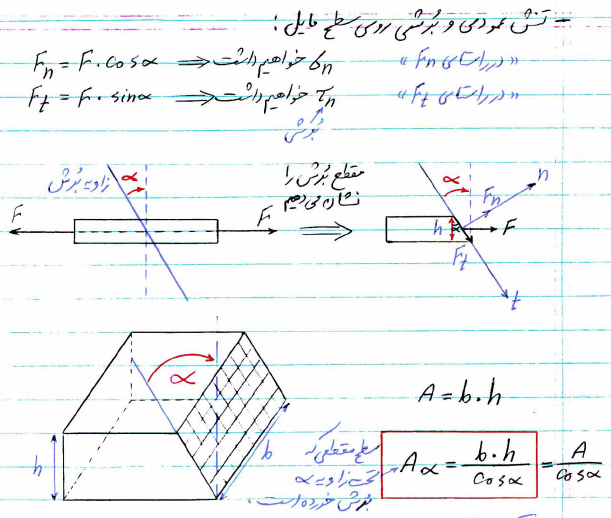 – تنش عمودی و بُرشی روی سطح مایل :
Fn = F·cosα ⟹ σn خواهیم داشت "در راستای Fn"
Ft = F·sinα ⟹ τn خواهیم داشت "در راستای Ft"
بُرشی
زاویه بُرش
α
F
F
مقطع بُرش را
نشان می‌دهیم
⟹
α
n
Fn
h
α
F
Ft
t
α
h
b
A = b·h
سطح مقطعی که
تحت زاویه α
بُرش خورده است.
Aα = b·h / cosα = A / cosα